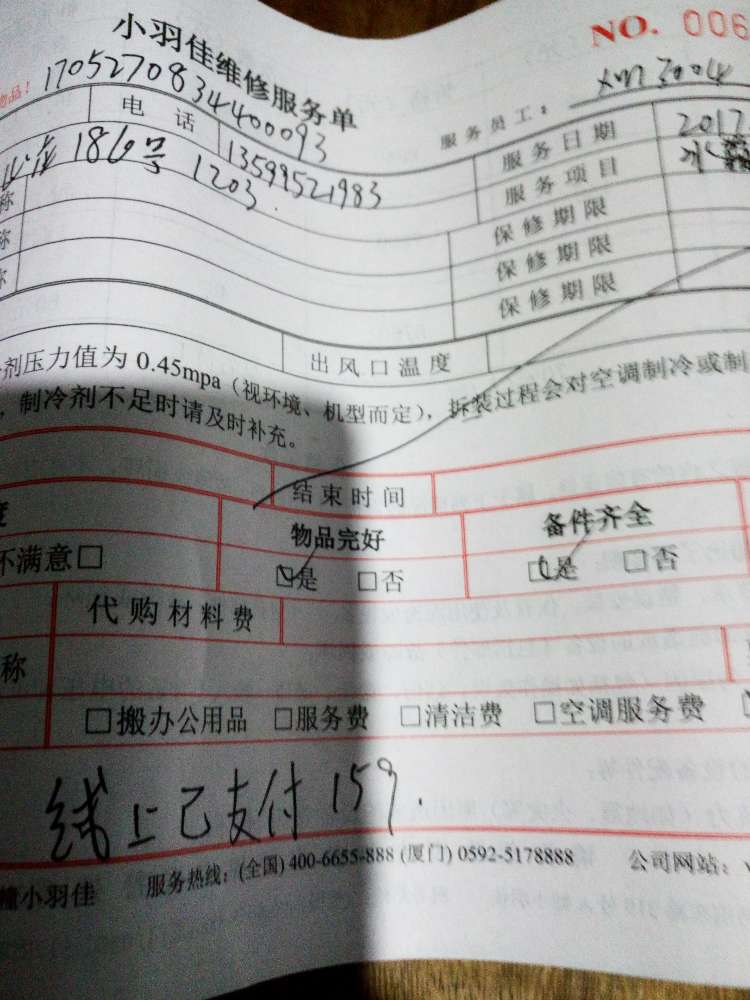 小羽佳维修服务单
NO. 006
物品！
17052708344400093
服务员工：
电话 13599521983 服务日期 2017
186号 1203. 服务项目
称 保修期限
称 保修期限
称 保修期限
出风口温度
剂压力值为 0.45mpa（视环境、机型而定），拆装过程会对空调制冷或制
，制冷剂不足时请及时补充。
结束时间
度 物品完好 备件齐全
不满意□ ☑是 □否 ☑是 □否
代购材料费
称
□搬办公用品 □服务费 □清洁费 □空调服务费
线上已支付 159.
小羽佳 服务热线：(全国) 400-6655-888 (厦门) 0592-5178888 公司网站：